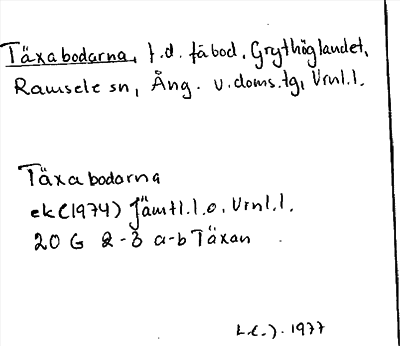 Täxabodarna, f.d. fäbod, Grythöglandet,
Ramsele sn, Ång. v. doms.tg, Vrnl.l.
Täxabodarna
ek (1974) Jämtl.l.o. Vrnl.l.
20 G 2-3 a-b Täxan
1977